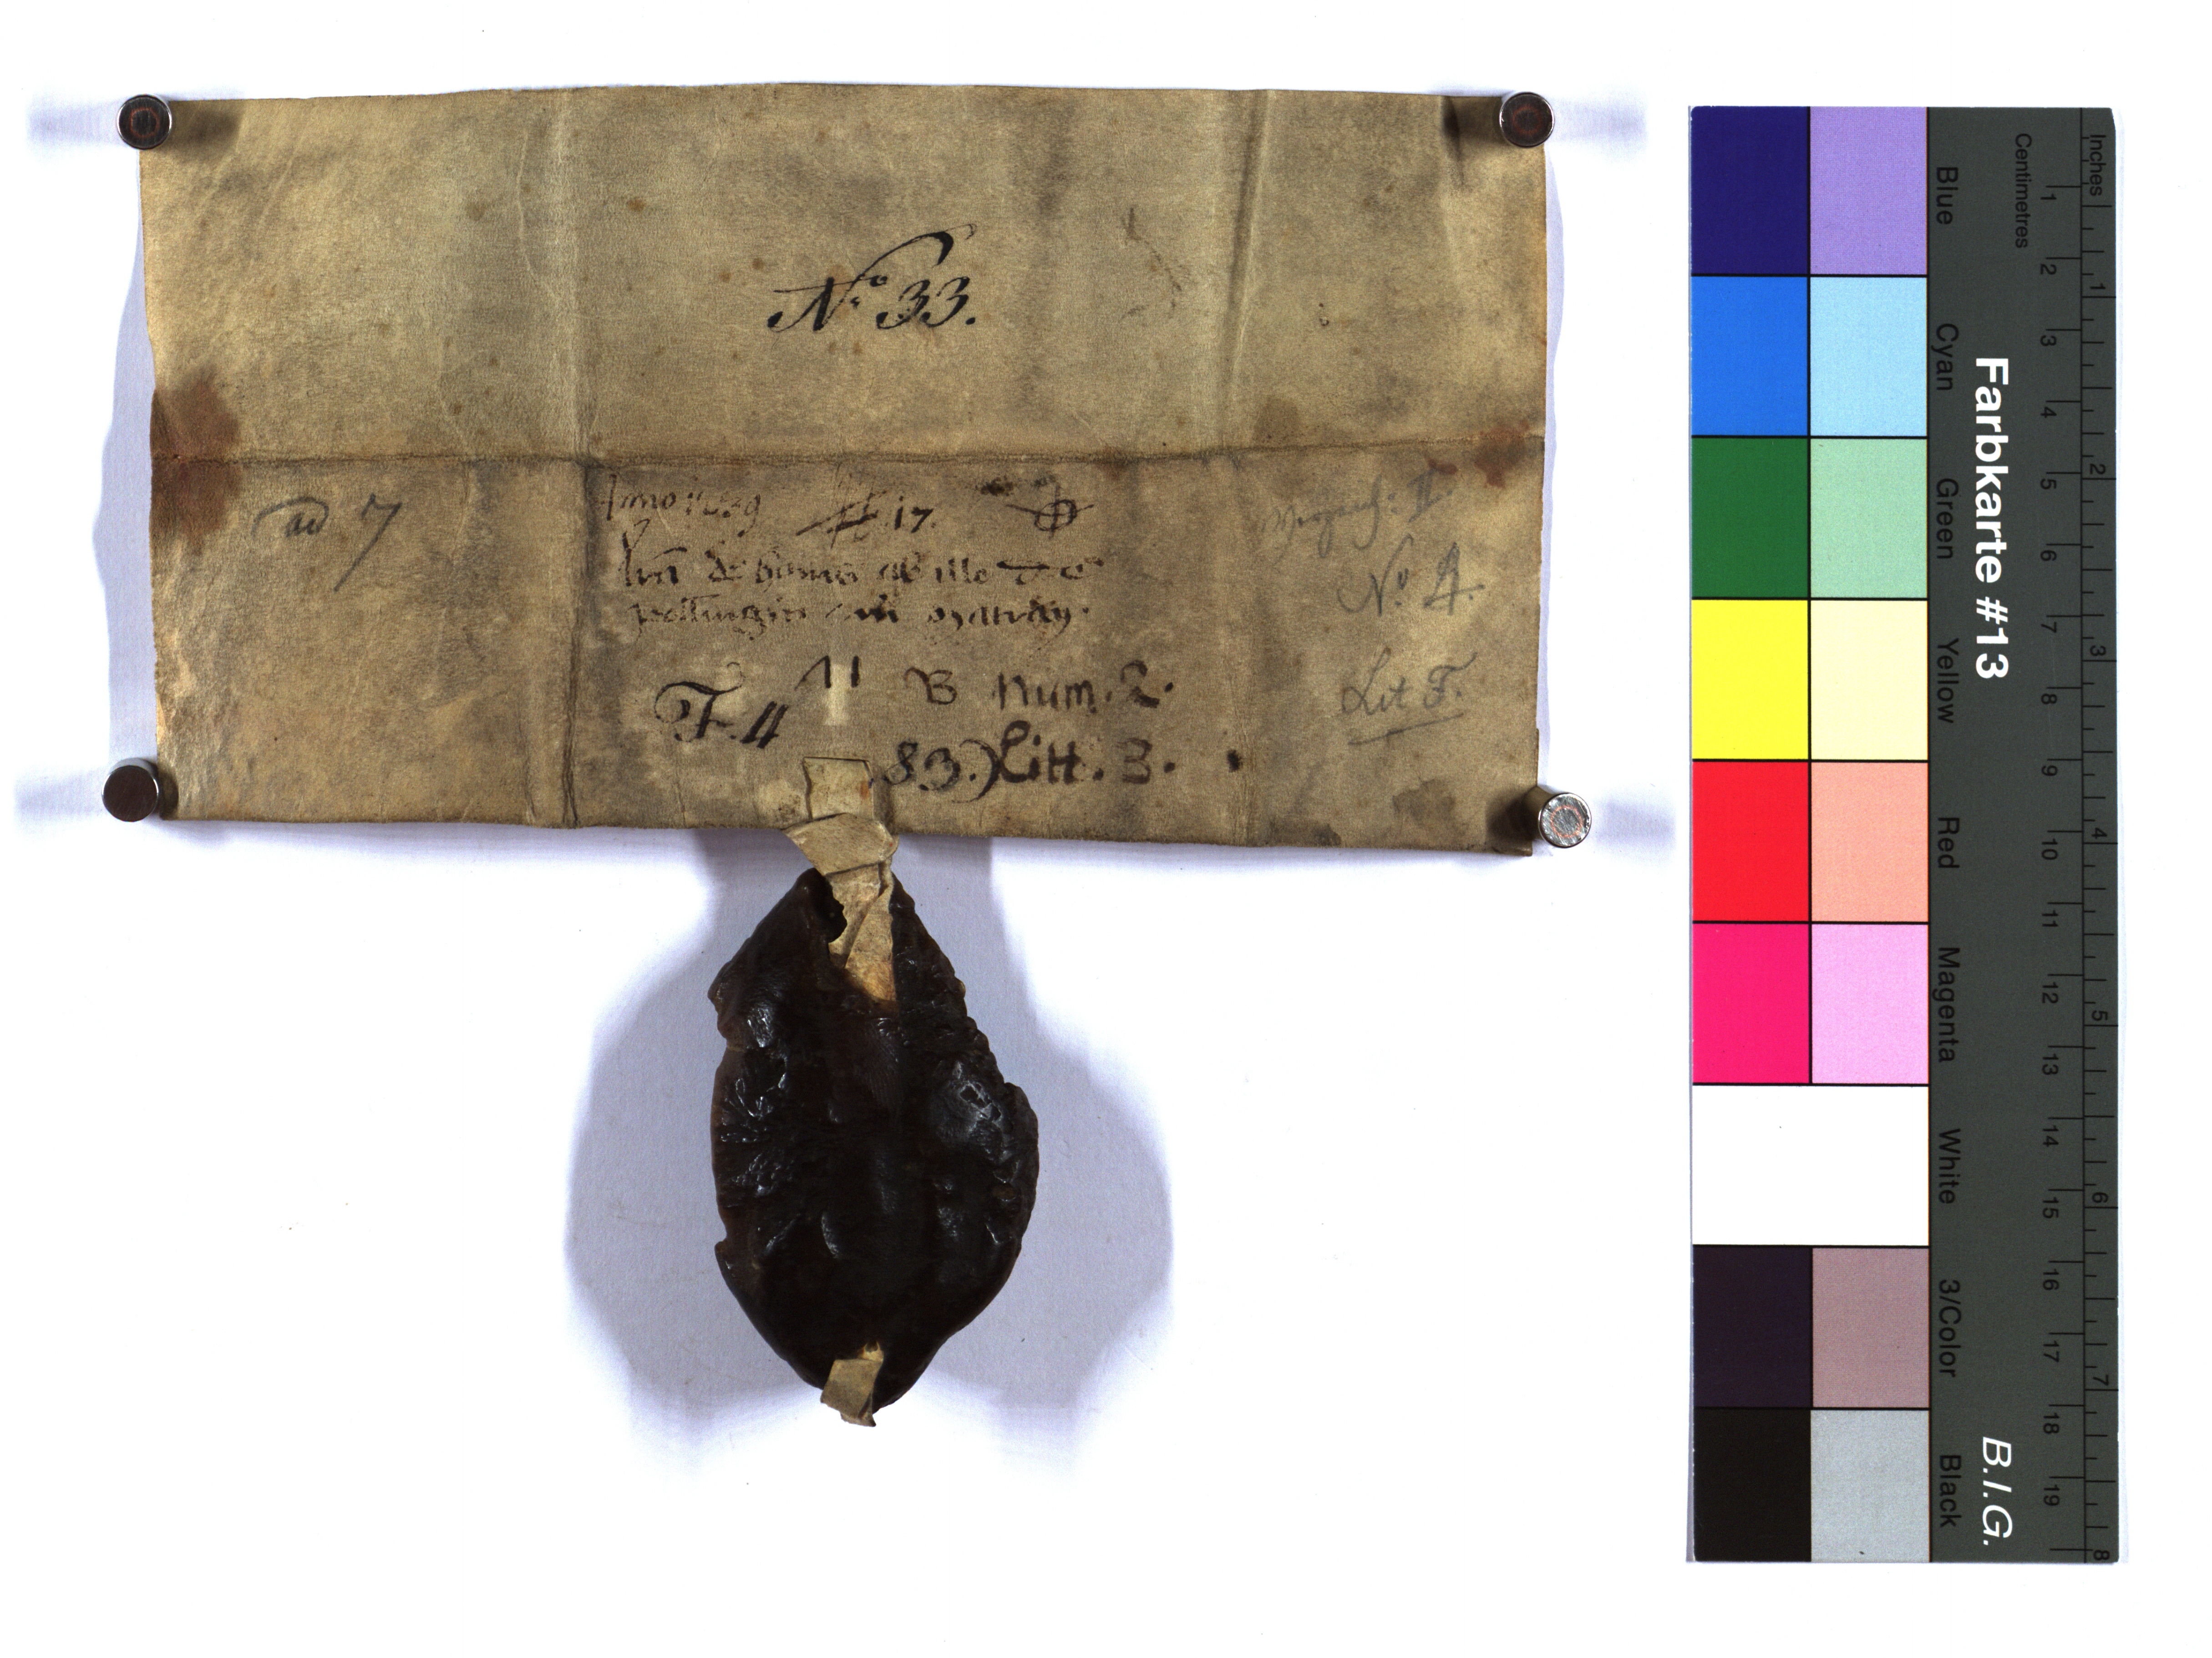 No 33.
ad 7
Anno 1239 17.
lrã de bonis
F. 4 11 B Num. 2.
83.) Litt. 3.
Verzeich: II.
No. 4.
Lit F.
Inches
Centimetres
1 2 3 4 5 6 7 8 9 10 11 12 13 14 15 16 17 18 19
1 2 3 4 5 6 7 8
Farbkarte #13
B.I.G.
Blue
Cyan
Green
Yellow
Red
Magenta
White
3/Color
Black